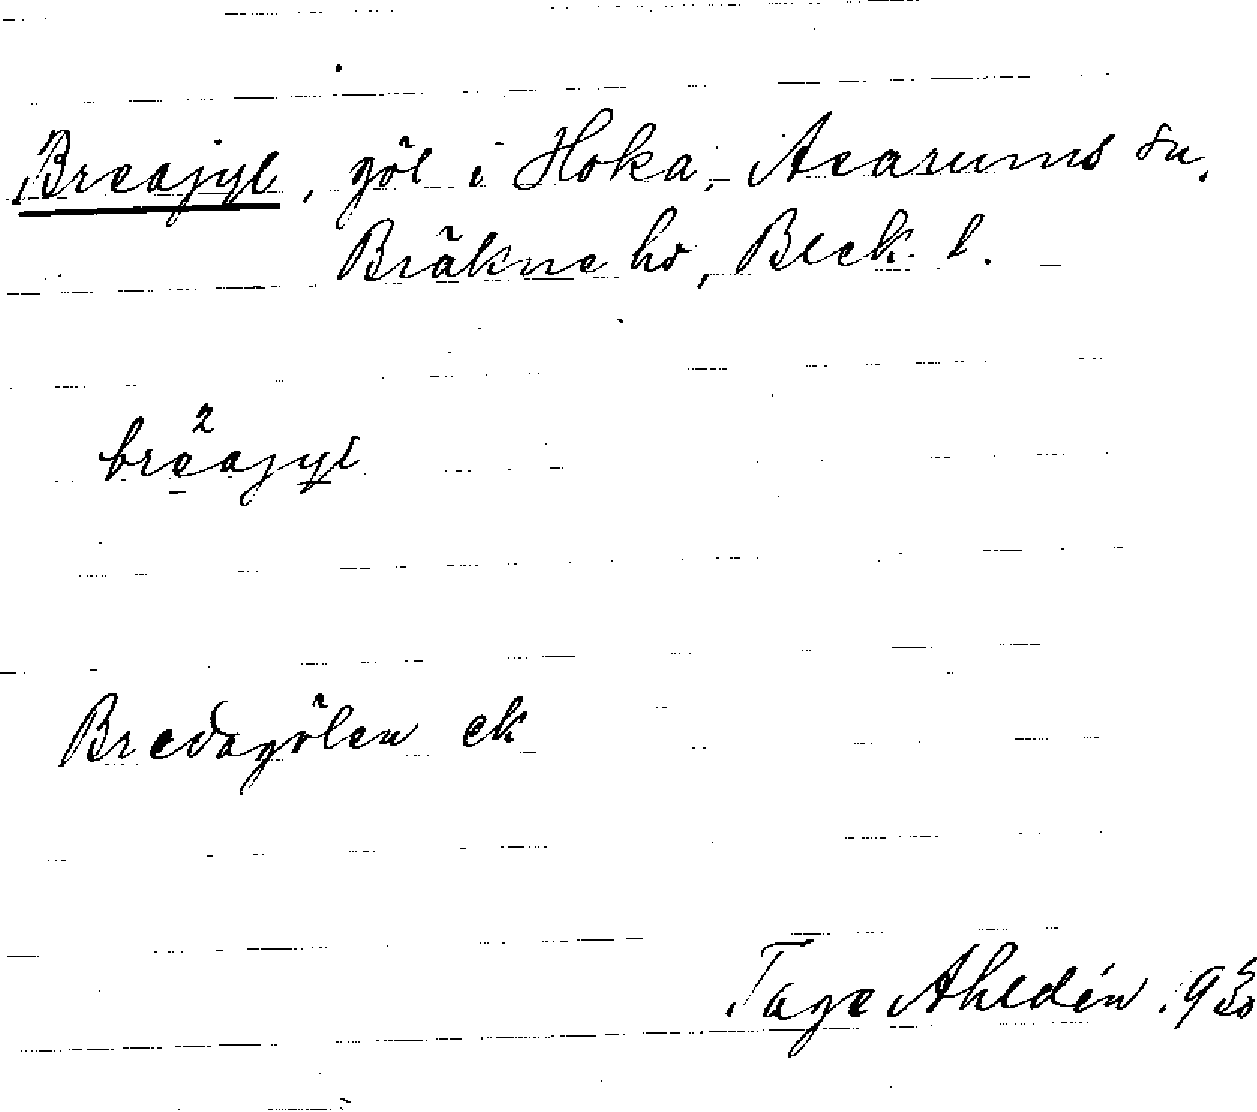 Breajyl, göl i Hoka, Asarums sn,
Bräkne hd, Blek. l.
bre²ajyl
Bredagölen ek
Tage Ahldén 1930